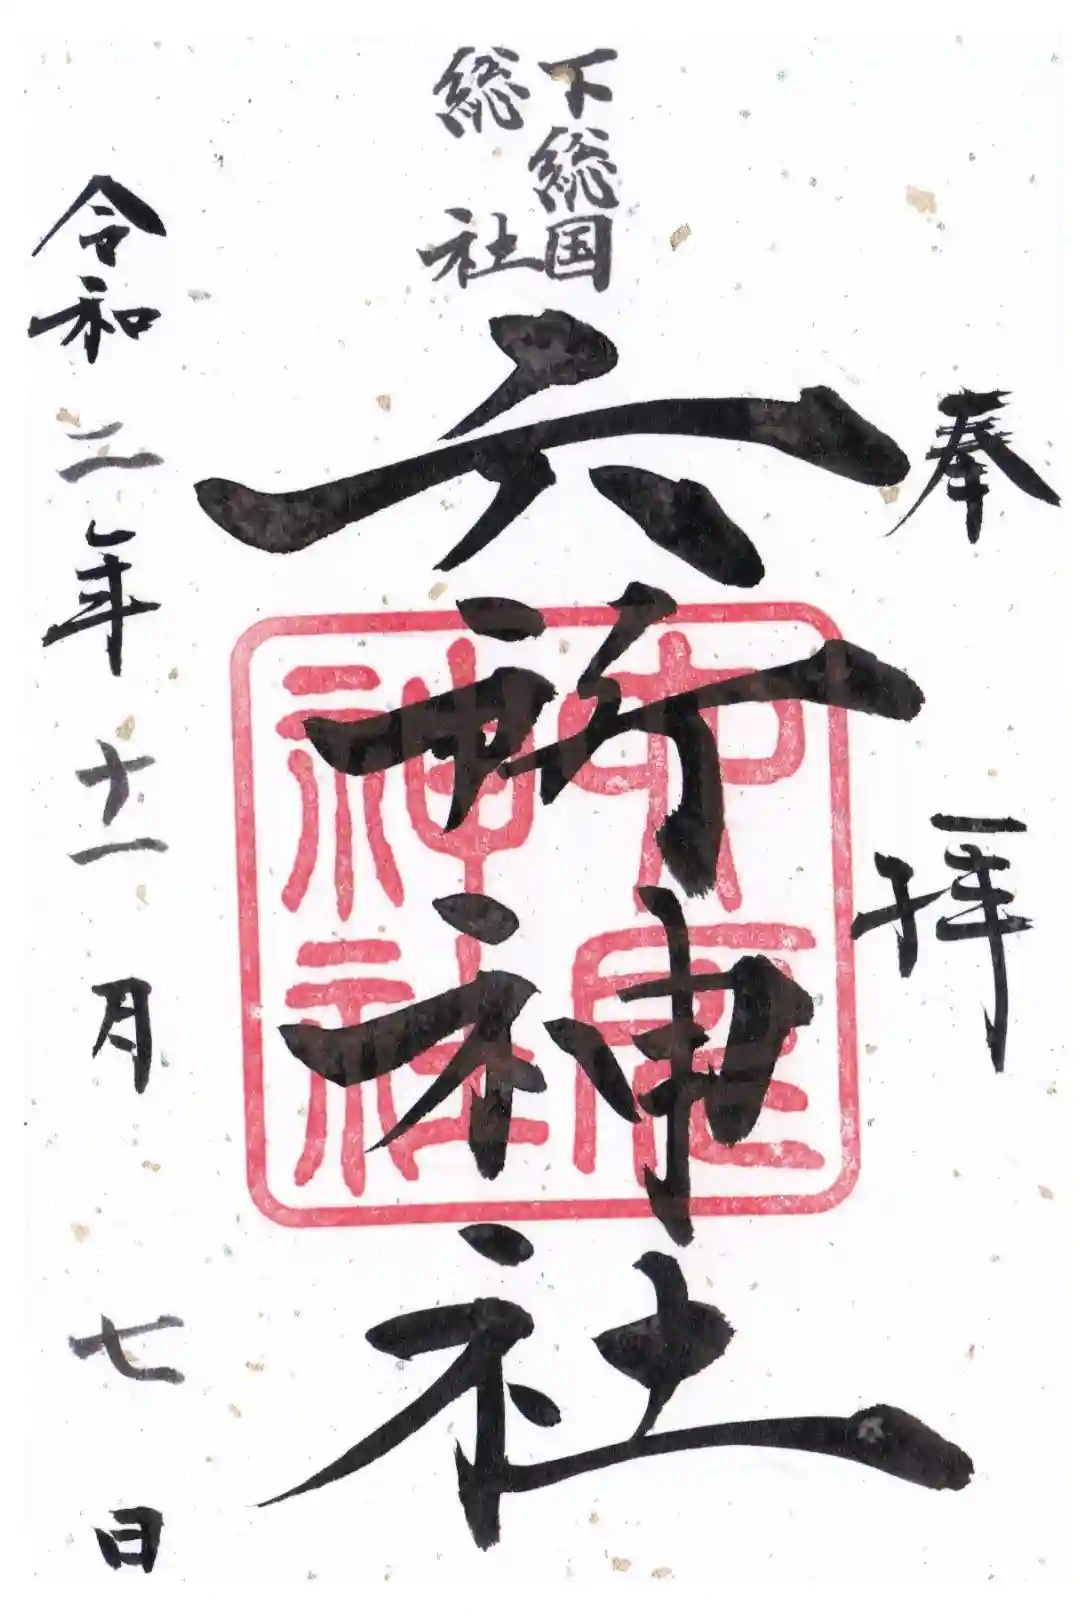 奉拝
下総国
総社
六所神社
令和二年十一月七日
六所
神社